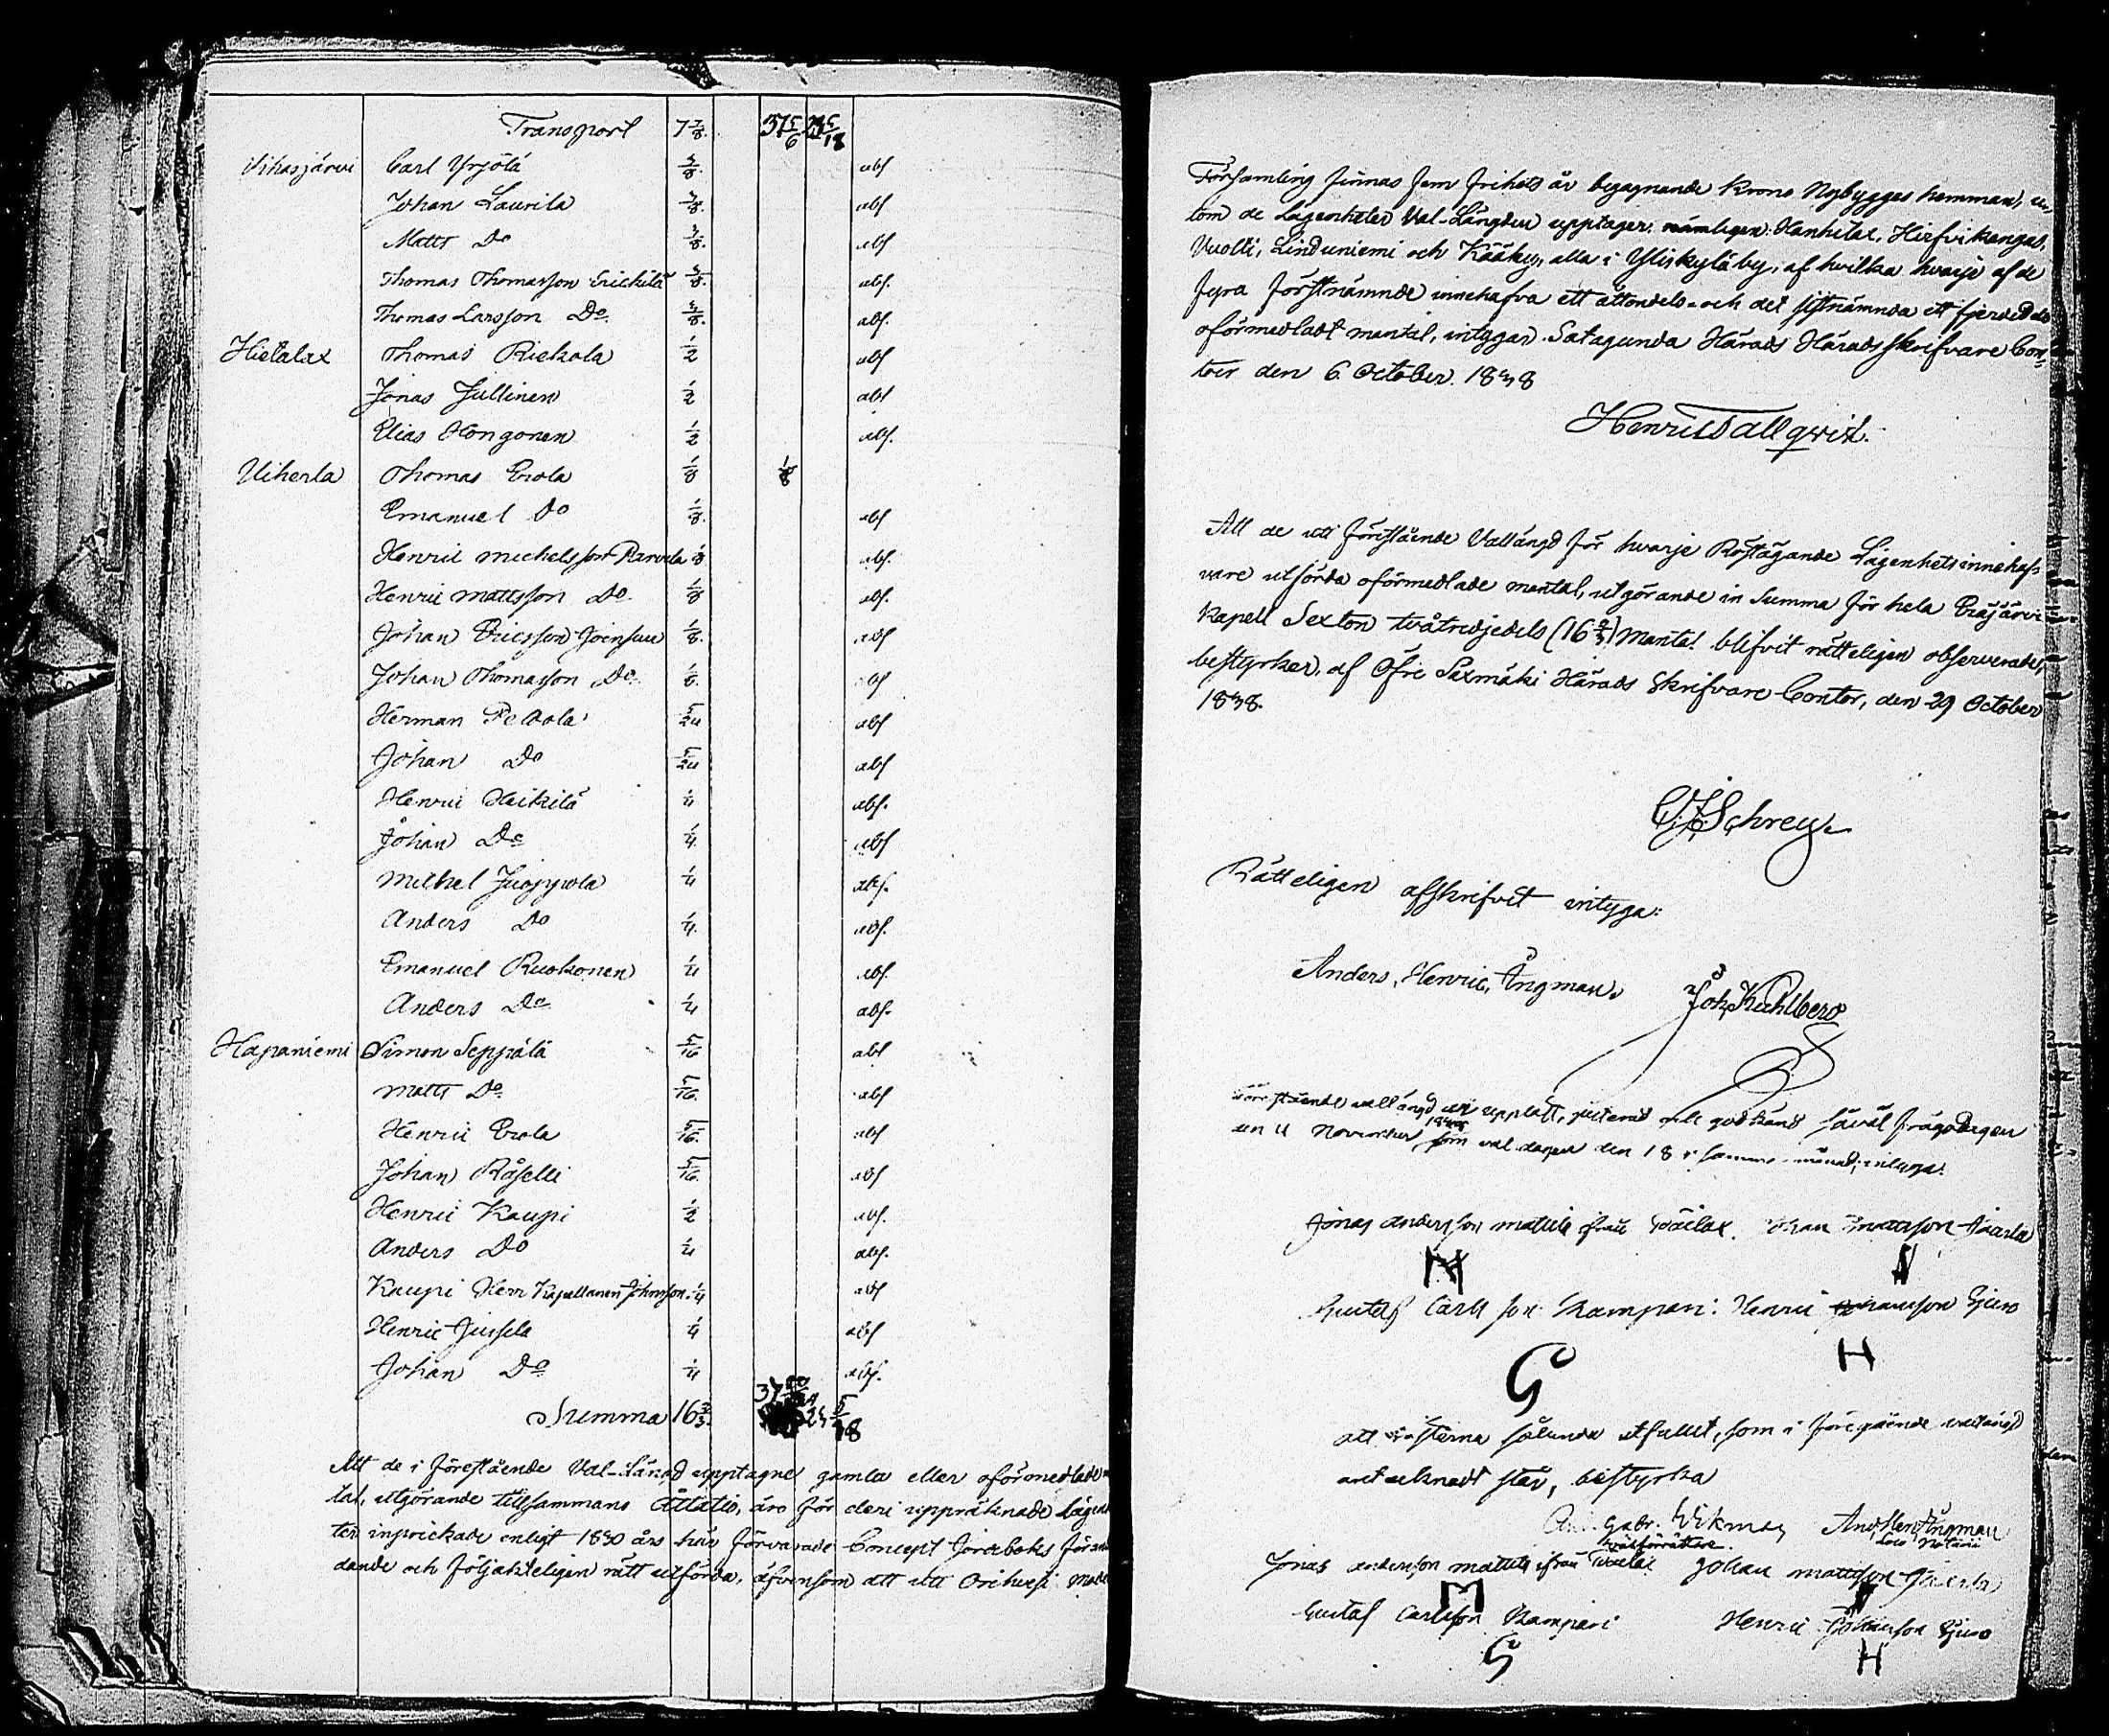 Transport 7 7/8. 37 5/6
Vihasjärvi Carl Yrjölä 3/8. abs
Johan Laurila 3/8. abs
Matts Do 3/8. abs
Thomas Thomasson Erickilä 3/8. abs.
Thomas Larsson Do. 3/8. abs.
Hietalax Thomas Riekola 1/2 abs
Jonas Jullinen 1/2 abs
Elias Hongonen 1/2 abs.
Uiherla Thomas Erola 1/8 1/8
Emanuel Do 1/8. abs
Henric Michelsson Parvela 1/8 abs.
Henric Mattsson Do. 1/8 abs.
Johan Ericsson Joensuu 1/8. abs
Johan Thomasson Do. 1/8. abs
Herman Peltola 5/24 abs
Johan Do 5/24 abs
Henric Heikilä 1/4 abs.
Johan Do 1/4. abs
Michel Juoppola 1/4 abs.
Anders Do 1/4. abs.
Emanuel Ruokonen 1/4 abs.
Anders Do 1/4 abs.
Hapaniemi Simon Seppälä 5/16 abs
Matts Do. 5/16. abs
Henric Erola 5/16. abs
Johan Råselli 5/16. abs
Henric Kaupi 1/2 abs.
Anders Do 1/4 abs.
Kaupi Herr Kapellanen Johnsson 1/4 abs
Henric Jussela 1/4 abs
Johan Do 1/4 abs.
Summa 16 2/3.
Att de i förestående Val-Längd upptagne gamla eller oförmedlade
tal, utgörande tillsammans Åttatio, äro för deri uppräknade Lägen
ter inprickade enligt 1830 års här förvarade Concept Jordeboks för
dande och följakteligen rätt utförda, äfvensom att uti Orihvesi Mode
Församling finnas fem frihets år begagnande Krono Nybygges hemman, u
tom de Lägenheter Val-Längden upptager, nämligen: Hanhilax, Hirfvikangas,
Vuolti, Linduniemi och Kääky, alla i Yliskylä by, af hvilka hvarje af de
fyra förstnämnde innehafva ett åttondels- och det sistnämnda ett fjerdedels
oförmedladt mantal, intygar. Satagunda Härads Häradsskrifvare Con-
toir den 6 October 1838
Henric Tallqvist.
Att de uti förestående Vallängd för hvarje Röstägande Lägenhetsinnehaf-
vare utförda oförmedlade mantal, utgörande in Summa för hela Eräjärvi
Kapell Sexton tvåtredjedels (16 2/3) Mantal blifvit rätteligen observerade,
bestyrkes, af Öfre Saxmäki Härads Skrifvare Contor, den 29 October
1838.
Schrey
Rätteligen afskrifvet intyga:
Anders, Henric, Ångman. Joh. Kahlberg
Förestående vallängd uppläst, justerad och godkänd såväl frågodagen
den 4 November 1838 som valdagen den 18 i samma månad; intyga.
Jonas Andersson Mattila ifrån Johan Mattsson
M
Gustaf Carlsson Kampari: Henric Johansson Ejuro
G H
att rösterna sålunda utfallit, som i föregående vallängd
antecknadt står, bestyrka
Gabr. Wikman And Hen Ångman
Valförrättare. Loco Notarii
Jonas Andersson Mattila ifrån Johan Mattsson
M
Gustaf Carlsson Kampari Henric Johansson Ejuro
G H